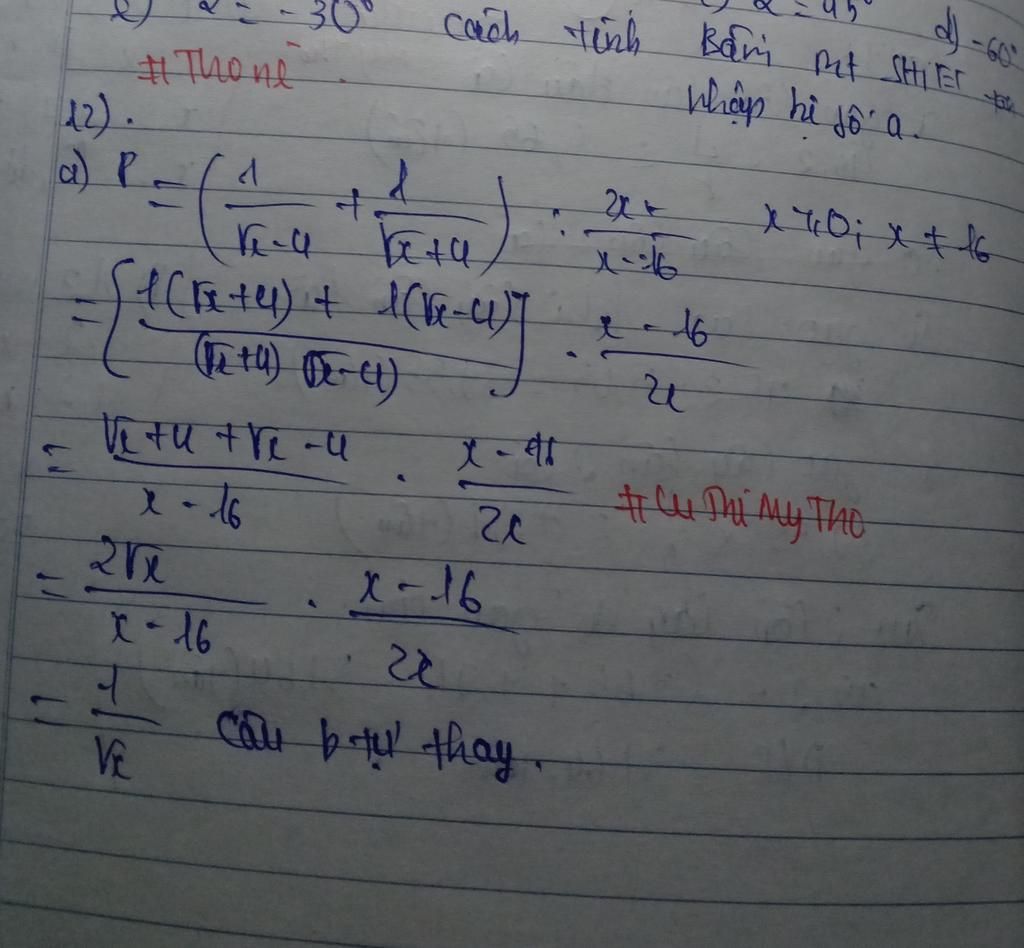 α = -30° cách tính Bấm mt SHIFT
α = 45° d) -60°
#Thonè. nhập hệ số a.
12).
a) P = (1/(√x-4) + 1/(√x+4)) : 2x/(x-16) x>0; x≠16
= [(1(√x+4) + 1(√x-4))/((√x+4)(√x-4))] . (x-16)/2x
= (√x+4+√x-4)/(x-16) . (x-16)/2x #CuThiMyTho
= 2√x/(x-16) . (x-16)/2x
= 1/√x câu b tự thay.